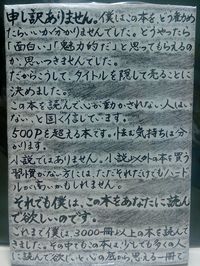 申し訳ありません。僕はこの本を、どう勧め
たらいいか分かりませんでした。どうやったら
「面白い」「魅力的だ」と思ってもらえるの
か、思いつきませんでした。
だからこうして、タイトルを隠して売ることに
決めました。
この本を読んで心が動かされない人はい
ない、と固く信じています。
500Pを超える本です。怯む気持ちは分
かります。
小説ではありません。小説以外の本を買う
習慣がない方には、ただそれだけでもハード
ルが高いかもしれません。
それでも僕は、この本をあなたに読ん
で欲しいのです。
これまで僕は3000冊以上の本を読んで
きました。その中でもこの本は、少しでも多くの人
に読んで欲しいと心の底から思える一冊で